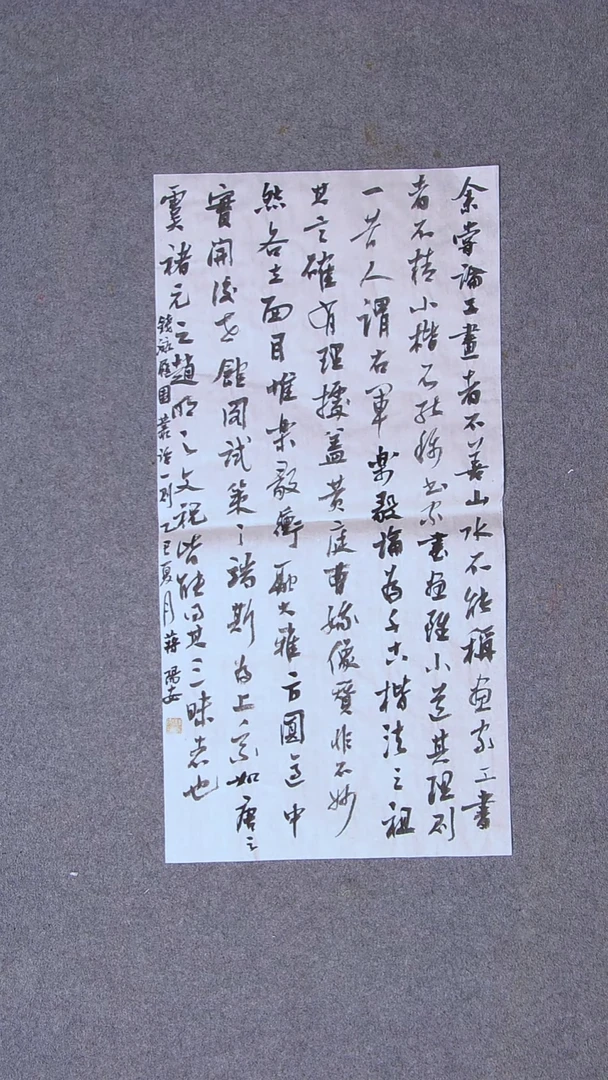 余嘗論工畫者不善山水不能稱画家工書
者不精小楷不能稱書家書画雖小道其理則
一昔人謂右軍樂毅論為千古楷法之祖
其言確有理據蓋黃庭曹娥像贊非不妙
然各立面目惟樂毅衝融大雅方圓適中
實開後世館閣試策之端斯為上乘如唐之
虞褚元之趙明之文祝皆能得其三昧者也
錢泳履園叢話一則乙巳夏月蔣陽安